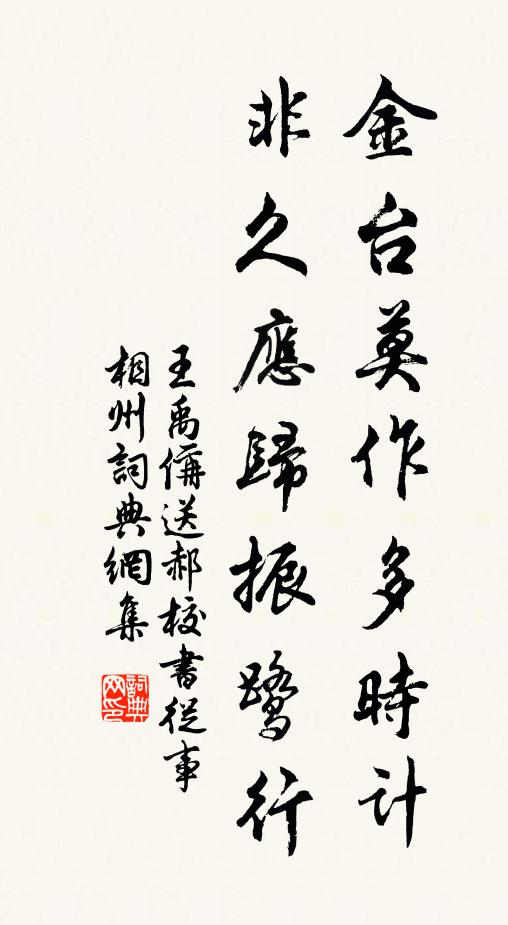 金台莫作多時計
非久應歸振鷺行
王禹偁送郝校書從事
相州詞典網集
詞典网印